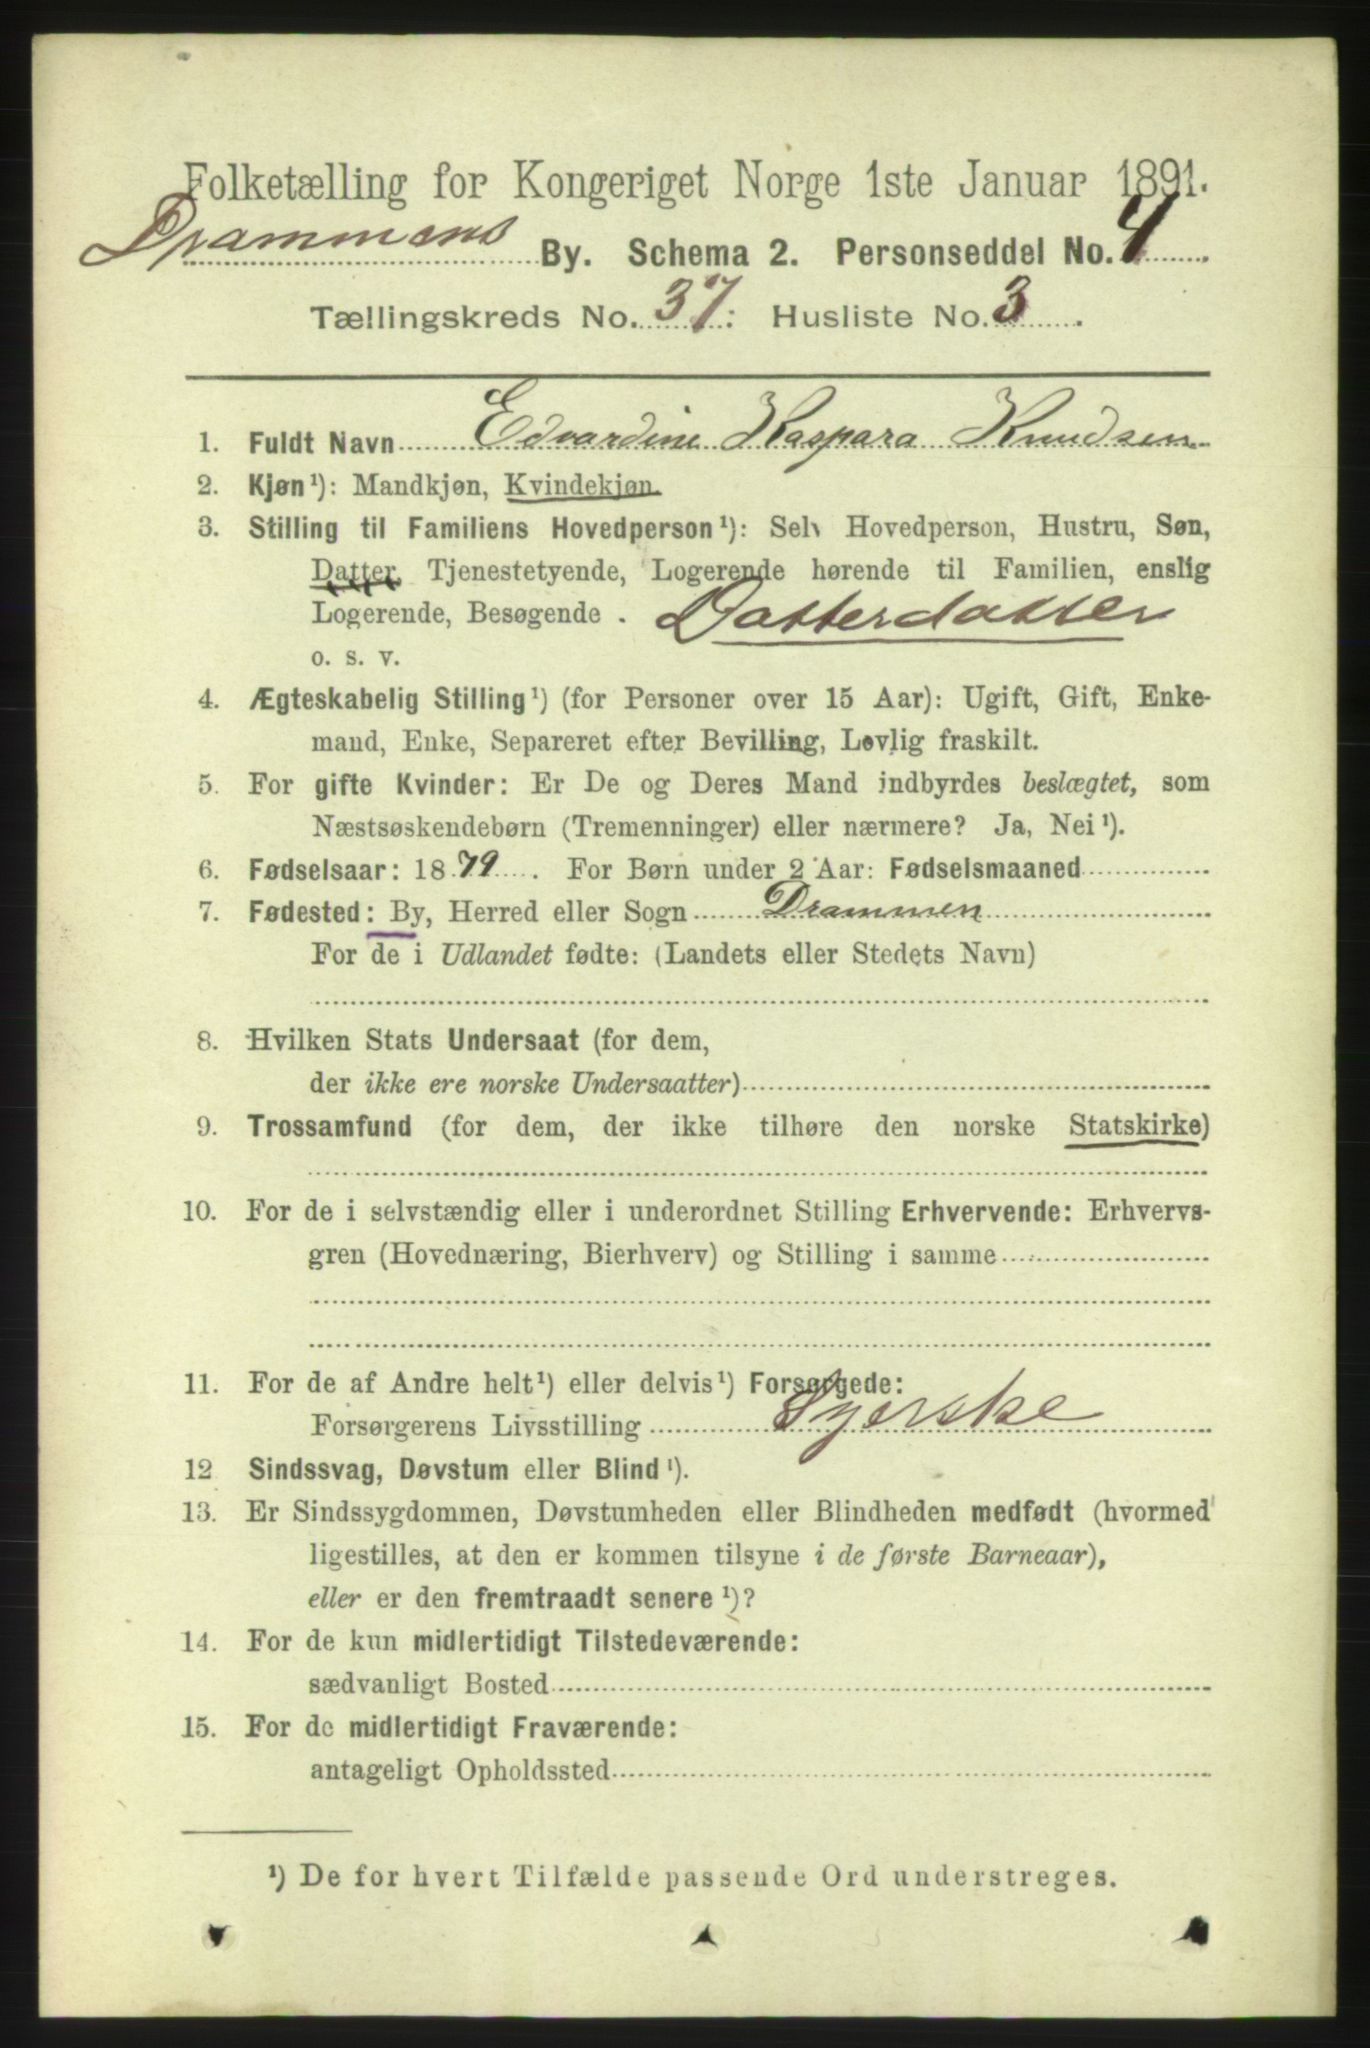 Folketælling for Kongeriget Norge 1ste Januar 1891.
Drammens By. Schema 2. Personseddel No. 4
Tællingskreds No. 37: Husliste No. 3.
1. Fuldt Navn Edvardine Kaspara Knudsen
2. Kjøn¹): Mandkjøn, Kvindekjøn.
3. Stilling til Familiens Hovedperson¹): Selv Hovedperson, Hustru, Søn,
Datter, Tjenestetyende, Logerende hørende til Familien, enslig
Logerende, Besøgende . Datterdatter
o. s. v.
4. Ægteskabelig Stilling¹) (for Personer over 15 Aar): Ugift, Gift, Enke-
mand, Enke, Separeret efter Bevilling, Lovlig fraskilt.
5. For gifte Kvinder: Er De og Deres Mand indbyrdes beslægtet, som
Næstsøskendebørn (Tremenninger) eller nærmere? Ja, Nei¹).
6. Fødselsaar: 1879. For Børn under 2 Aar: Fødselsmaaned
7. Fødested: By, Herred eller Sogn Drammen
For de i Udlandet fødte: (Landets eller Stedets Navn)
8. Hvilken Stats Undersaat (for dem,
der ikke ere norske Undersaatter)
9. Trossamfund (for dem, der ikke tilhøre den norske Statskirke)
10. For de i selvstændig eller i underordnet Stilling Erhvervende: Erhvervs-
gren (Hovednæring, Bierhverv) og Stilling i samme
11. For de af Andre helt¹) eller delvis¹) Forsørgede:
Forsørgerens Livsstilling Syerske
12 Sindssvag, Døvstum eller Blind¹).
13. Er Sindssygdommen, Døvstumheden eller Blindheden medfødt (hvormed
ligestilles, at den er kommen tilsyne i de første Barneaar),
eller er den fremtraadt senere¹)?
14. For de kun midlertidigt Tilstedeværende:
sædvanligt Bosted
15. For de midlertidigt Fraværende:
antageligt Opholdssted
¹) De for hvert Tilfælde passende Ord understreges.